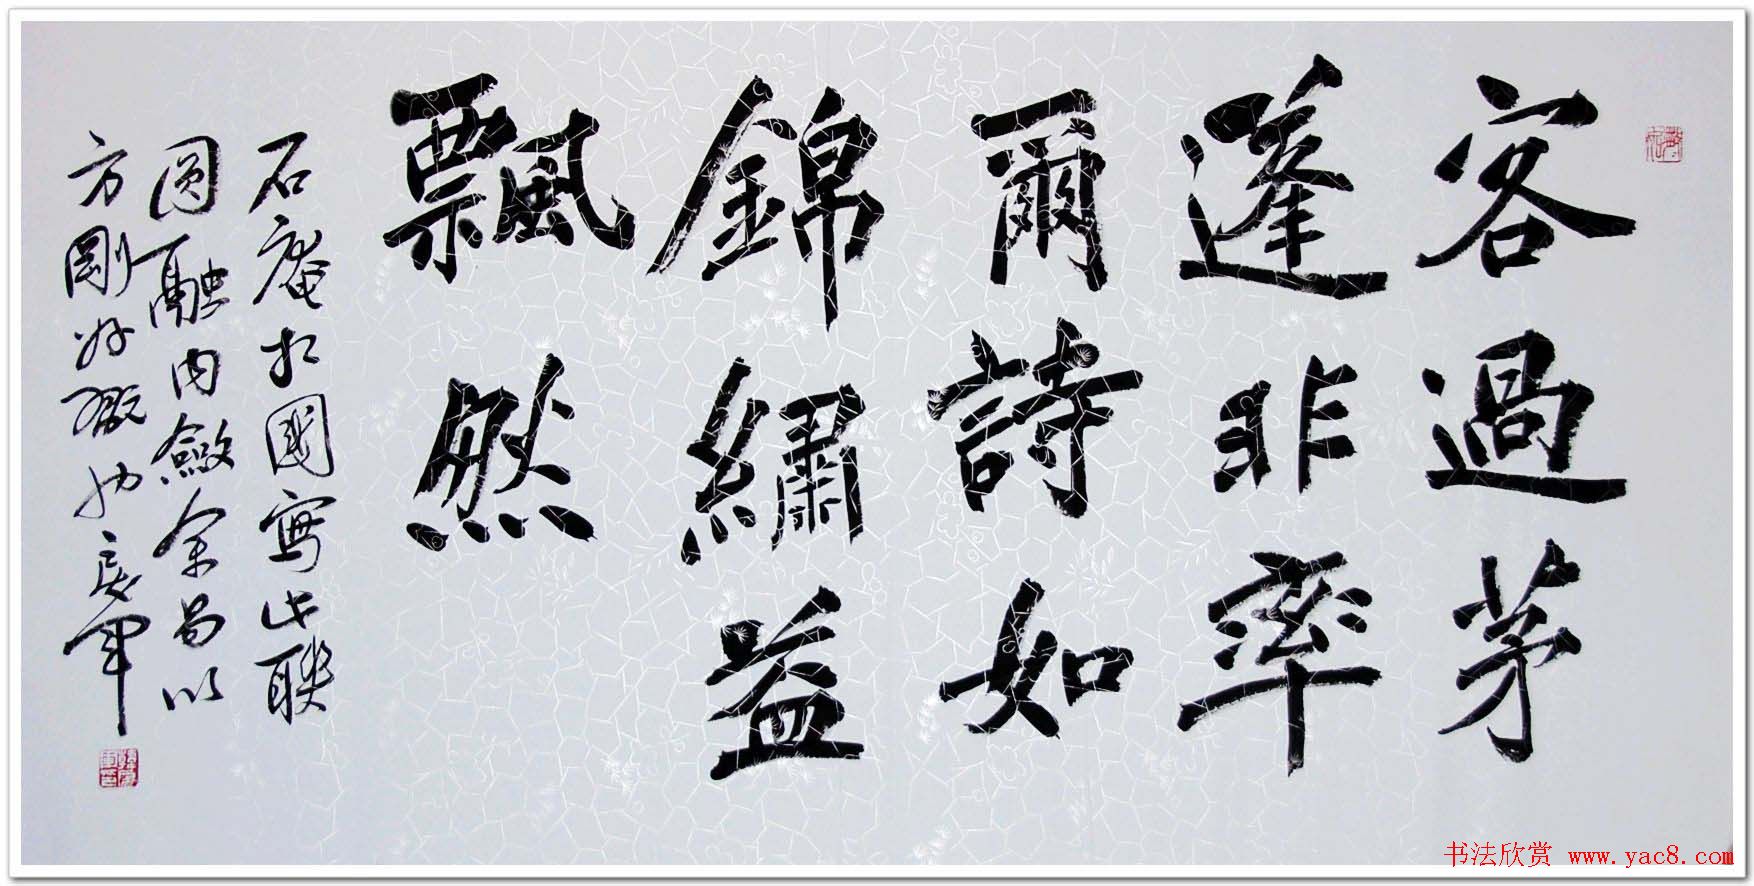 客過茅
蓬非率
爾詩如
錦繡益
飄然
石庵相國寫此聯
圓融內斂余易以
方剛
书法欣赏 www.yac8.com